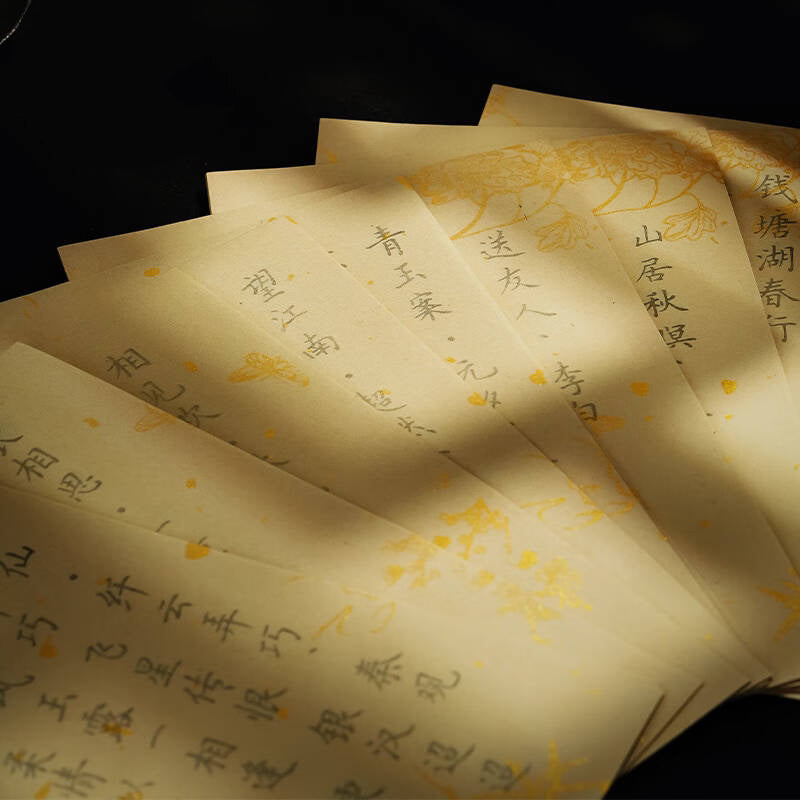 钱塘湖春行
山居秋暝、
送友人、李白
青玉案·元夕
望江南·超然
相见欢
相思·一
仙·纤云弄巧、秦观
巧 飞星传恨 银汉迢迢
风玉露一相逢
柔情似